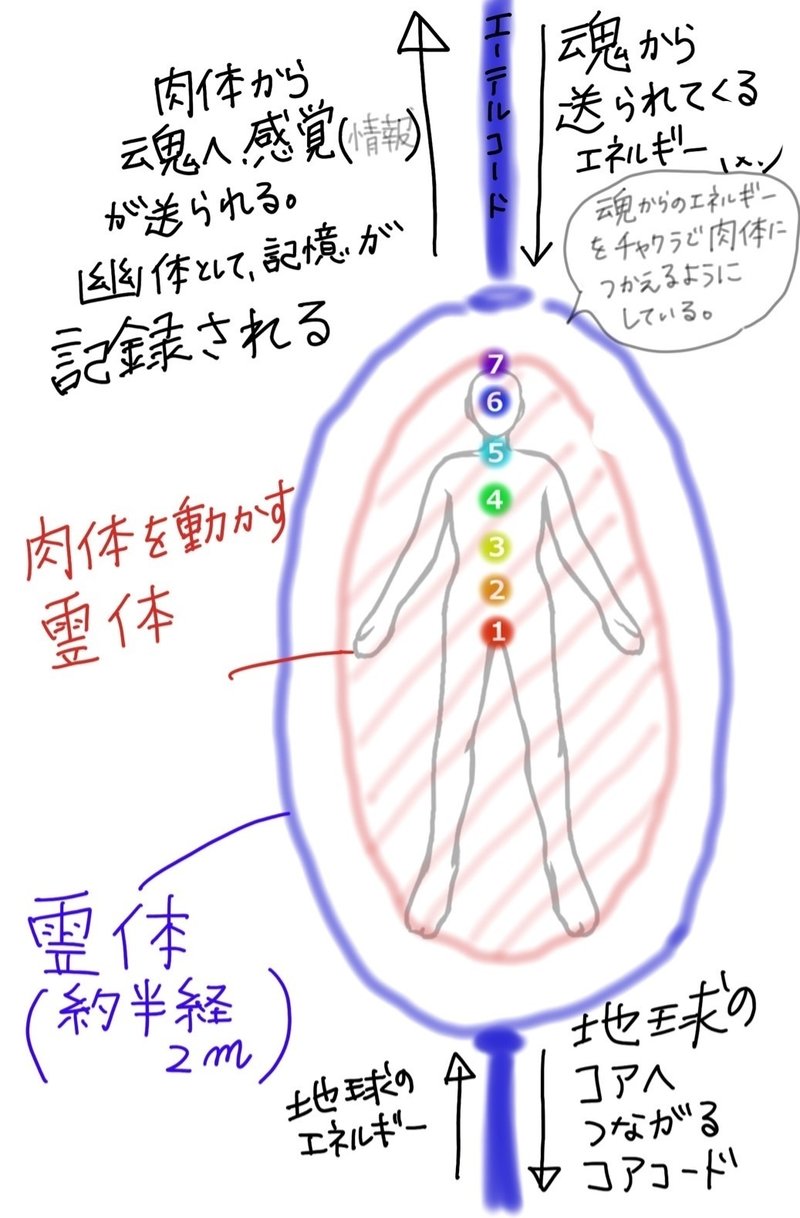 肉体から
魂へ感覚(情報)
が送られる。
幽体として、記憶が
記録される
エーテルコード
魂から
送られてくる
エネルギー
魂からのエネルギー
をチャクラで肉体に
つかえるように
している。
7
6
5
4
3
2
1
肉体を動かす
霊体
霊体
(約半経
2m)
地球の
エネルギー
地球の
コアへ
つながる
コアコード